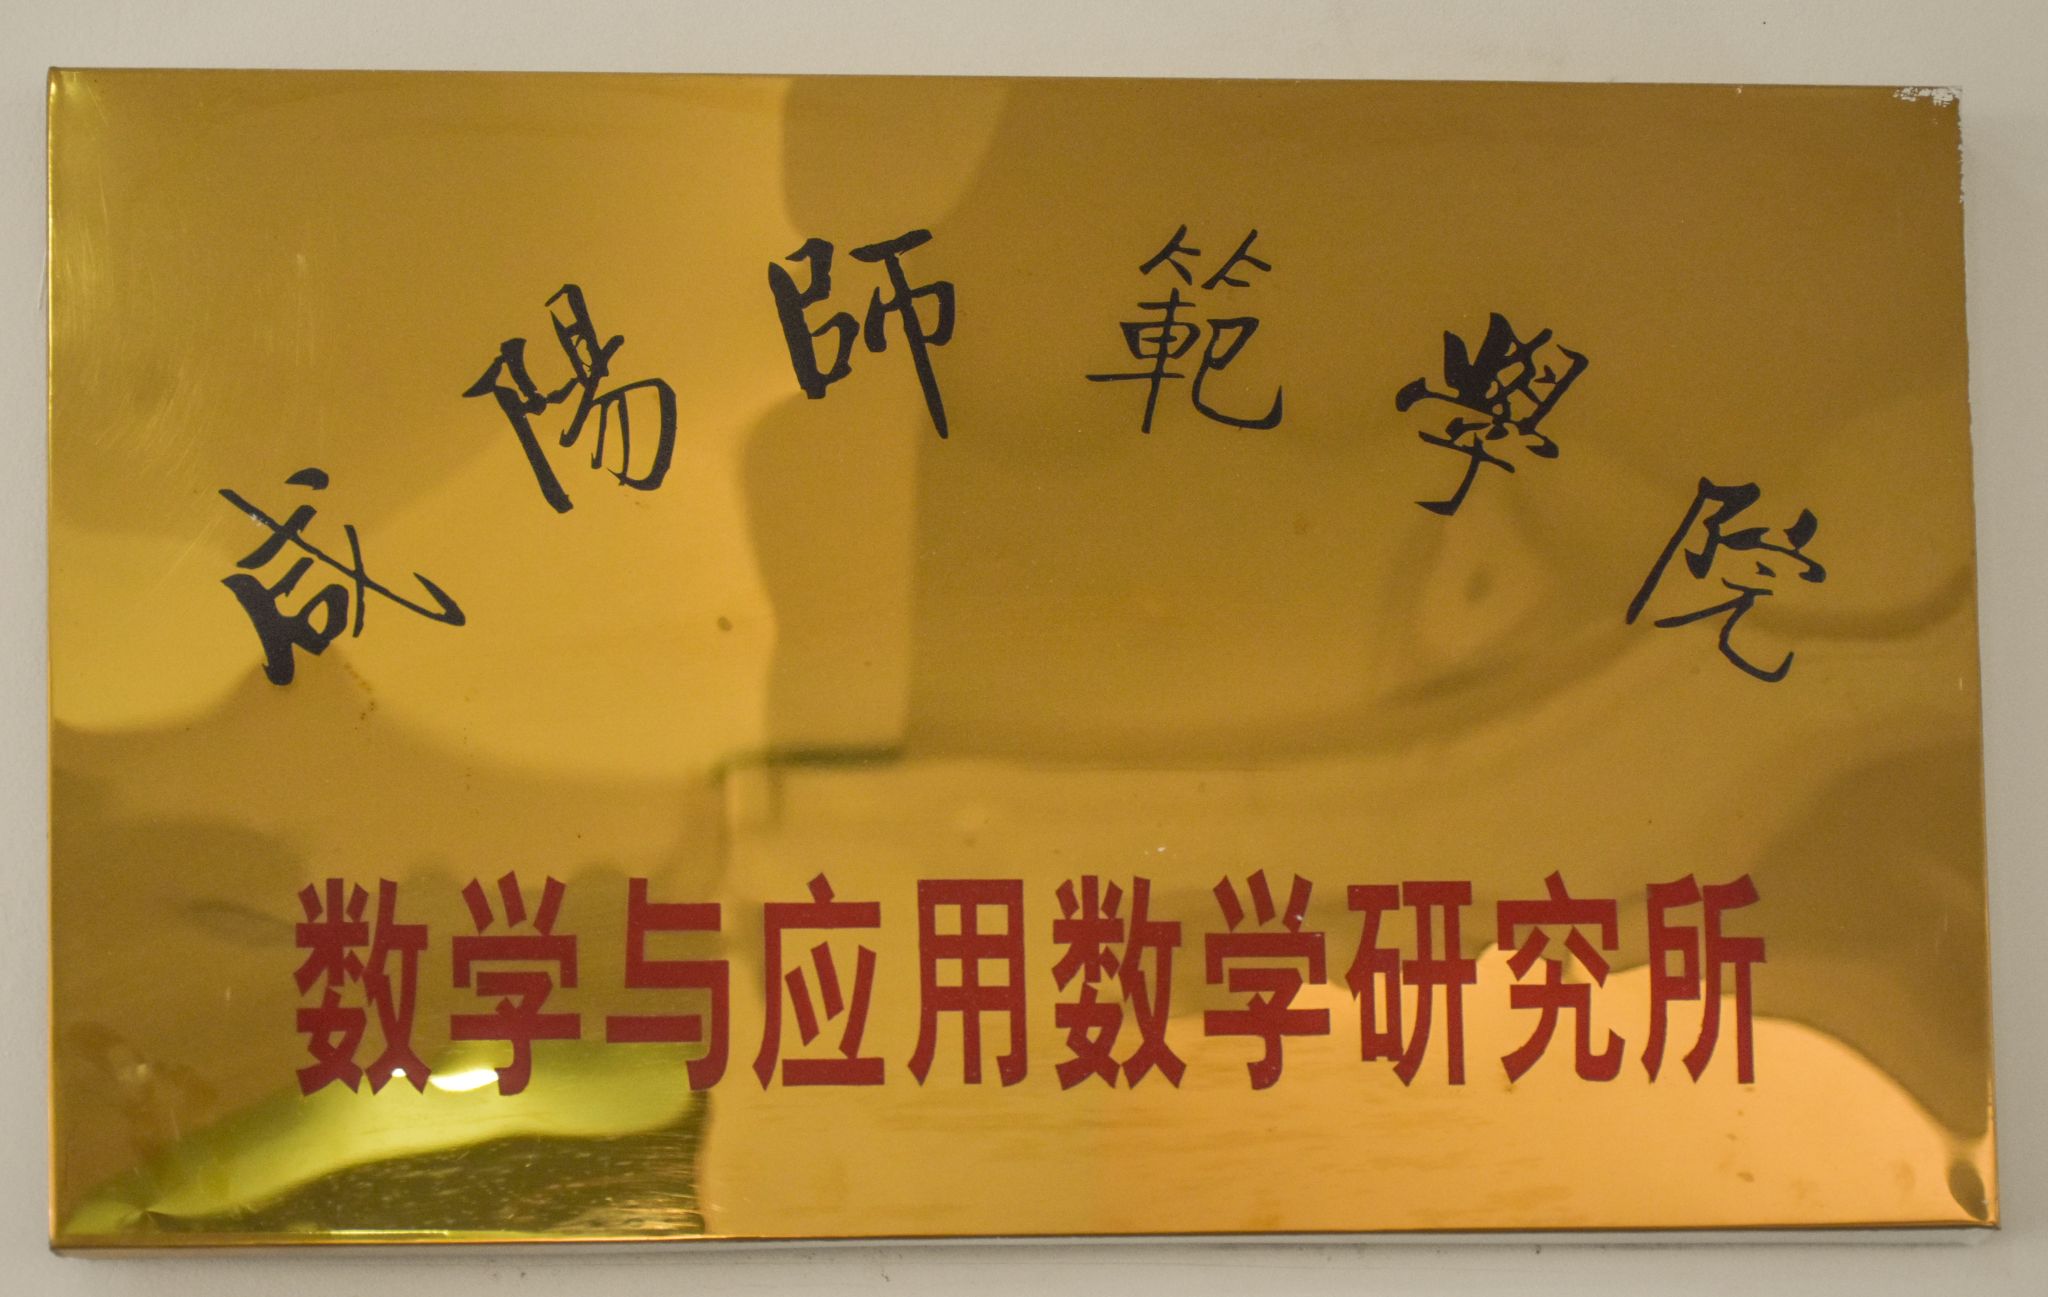 咸陽師範學院
数学与应用数学研究所